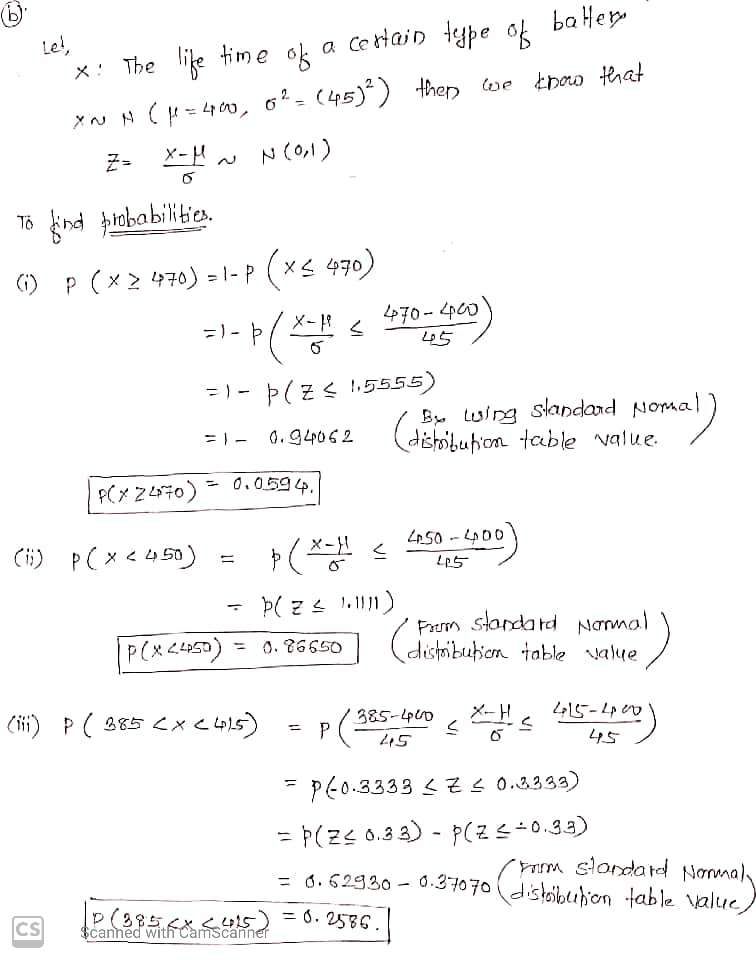 (b)
Let,
X: The life time of a certain type of battery
X ~ N (μ = 400, σ² = (45)²) then we know that
Z = (X-μ)/σ ~ N(0,1)
To find probabilities.
(i) P(X ≥ 470) = 1 - P(X ≤ 470)
= 1 - P((X-μ)/σ ≤ (470-400)/45)
= 1 - P(Z ≤ 1.5555)
= 1 - 0.94062 (By using standard Normal distribution table value.)
P(X ≥ 470) = 0.0594.
(ii) P(X < 450) = P((X-μ)/σ ≤ (450-400)/45)
= P(Z ≤ 1.1111)
P(X < 450) = 0.86650 (From standard Normal distribution table value)
(iii) P(385 < X < 415) = P((385-400)/45 ≤ (X-μ)/σ ≤ (415-400)/45)
= P(-0.3333 ≤ Z ≤ 0.3333)
= P(Z ≤ 0.33) - P(Z ≤ -0.33)
= 0.62930 - 0.37070 (From standard Normal distribution table value)
P(385 < X < 415) = 0.2586.
CS Scanned with CamScanner